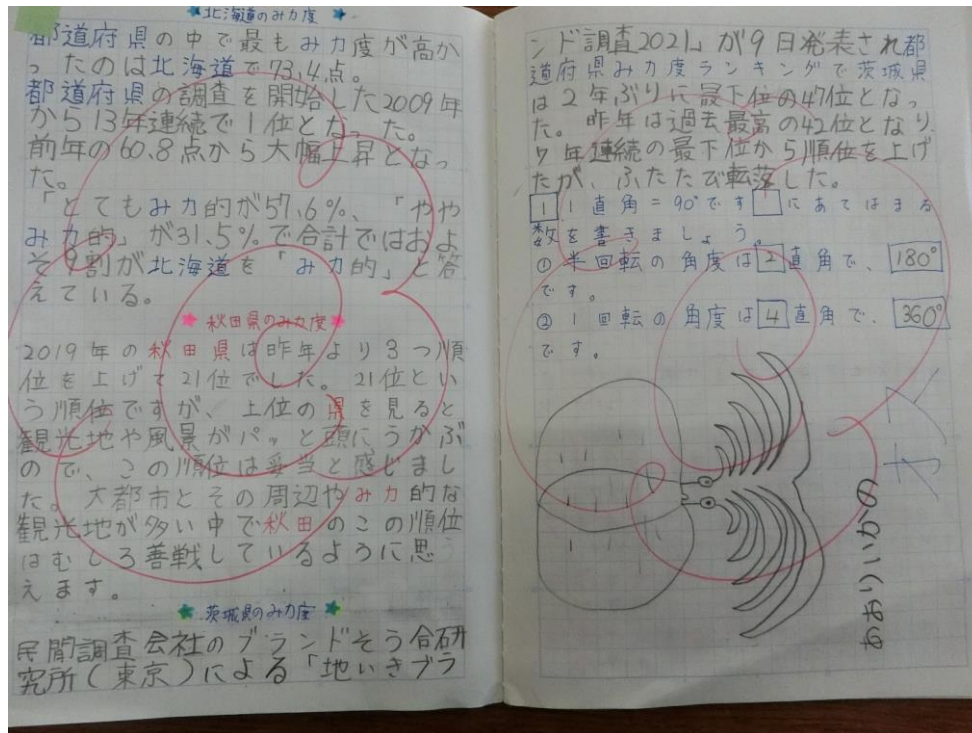 ★北海道のみカ度★
都道府県の中で最もみカ度が高か
ったのは北海道で73.4点。
都道府県の調査を開始した2009年
から13年連続で1位となった。
前年の60.8点から大幅上昇となっ
た。
「とてもみカ的が57.6%、「やや
みカ的」が31.5%で合計ではおよ
そ9割が北海道を「みカ的」と答
えている。
★秋田県のみカ度★
2019年の秋田県は昨年より3つ順
位を上げて21位でした。21位とい
う順位ですが、上位の県を見ると
観光地や風景がパッと頭にうかぶ
ので、この順位は妥当と感じまし
た。大都市とその周辺やみカ的な
観光地が多い中で秋田のこの順位
はむしろ善戦しているように思う
えます。
★茨城県のみカ度★
民間調査会社のブランドそう合研
究所(東京)による「地いきブラ
ンド調査2021」が9日発表され都
道府県みカ度ランキングで茨城県
は2年ぶりに最下位の47位となっ
た。昨年は過去最高の42位となり
7年連続の最下位から順位を上げ
たが、ふたたび転落した。
1 1直角=90°です□にあてはまる
数を書きましょう。
① 半回転の角度は2直角で、180°
です。
② 1回転の角度は4直角で、360°
です。
あおりいかの
オス